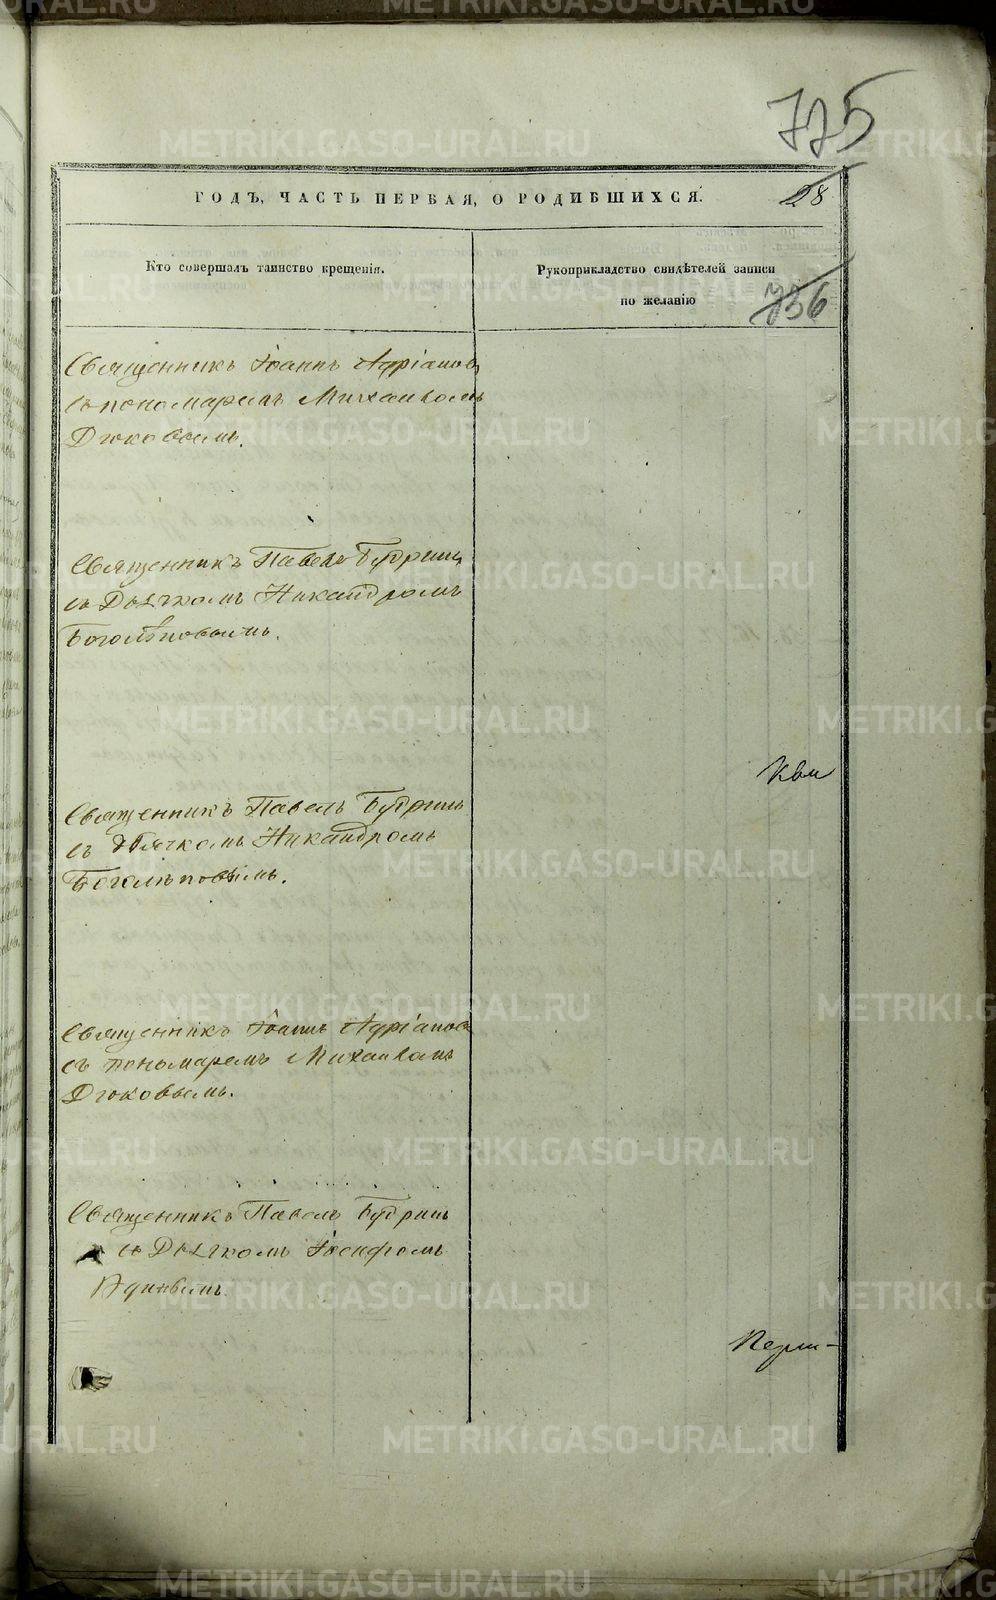 775
ГОДЪ, ЧАСТЬ ПЕРВАЯ, О РОДИВШИХСЯ.
28
Кто совершалъ таинство крещенія.
Рукоприкладство свидѣтелей записи
по желанію
736
Священникъ Іоаннъ Адріановъ
съ пономаремъ Михаиломъ
Дюковымъ.
Священникъ Павелъ Будринъ
съ Дьячкомъ Никандромъ
Боголѣповымъ.
Священникъ Павелъ Будринъ
съ дьячкомъ Никандромъ
Боголѣповымъ.
Священникъ Іоаннъ Адріановъ
съ пономаремъ Михаиломъ
Дюковымъ.
Священникъ Павелъ Будринъ
съ Дьячкомъ Іосифомъ
METRIKI.GASO-URAL.RU